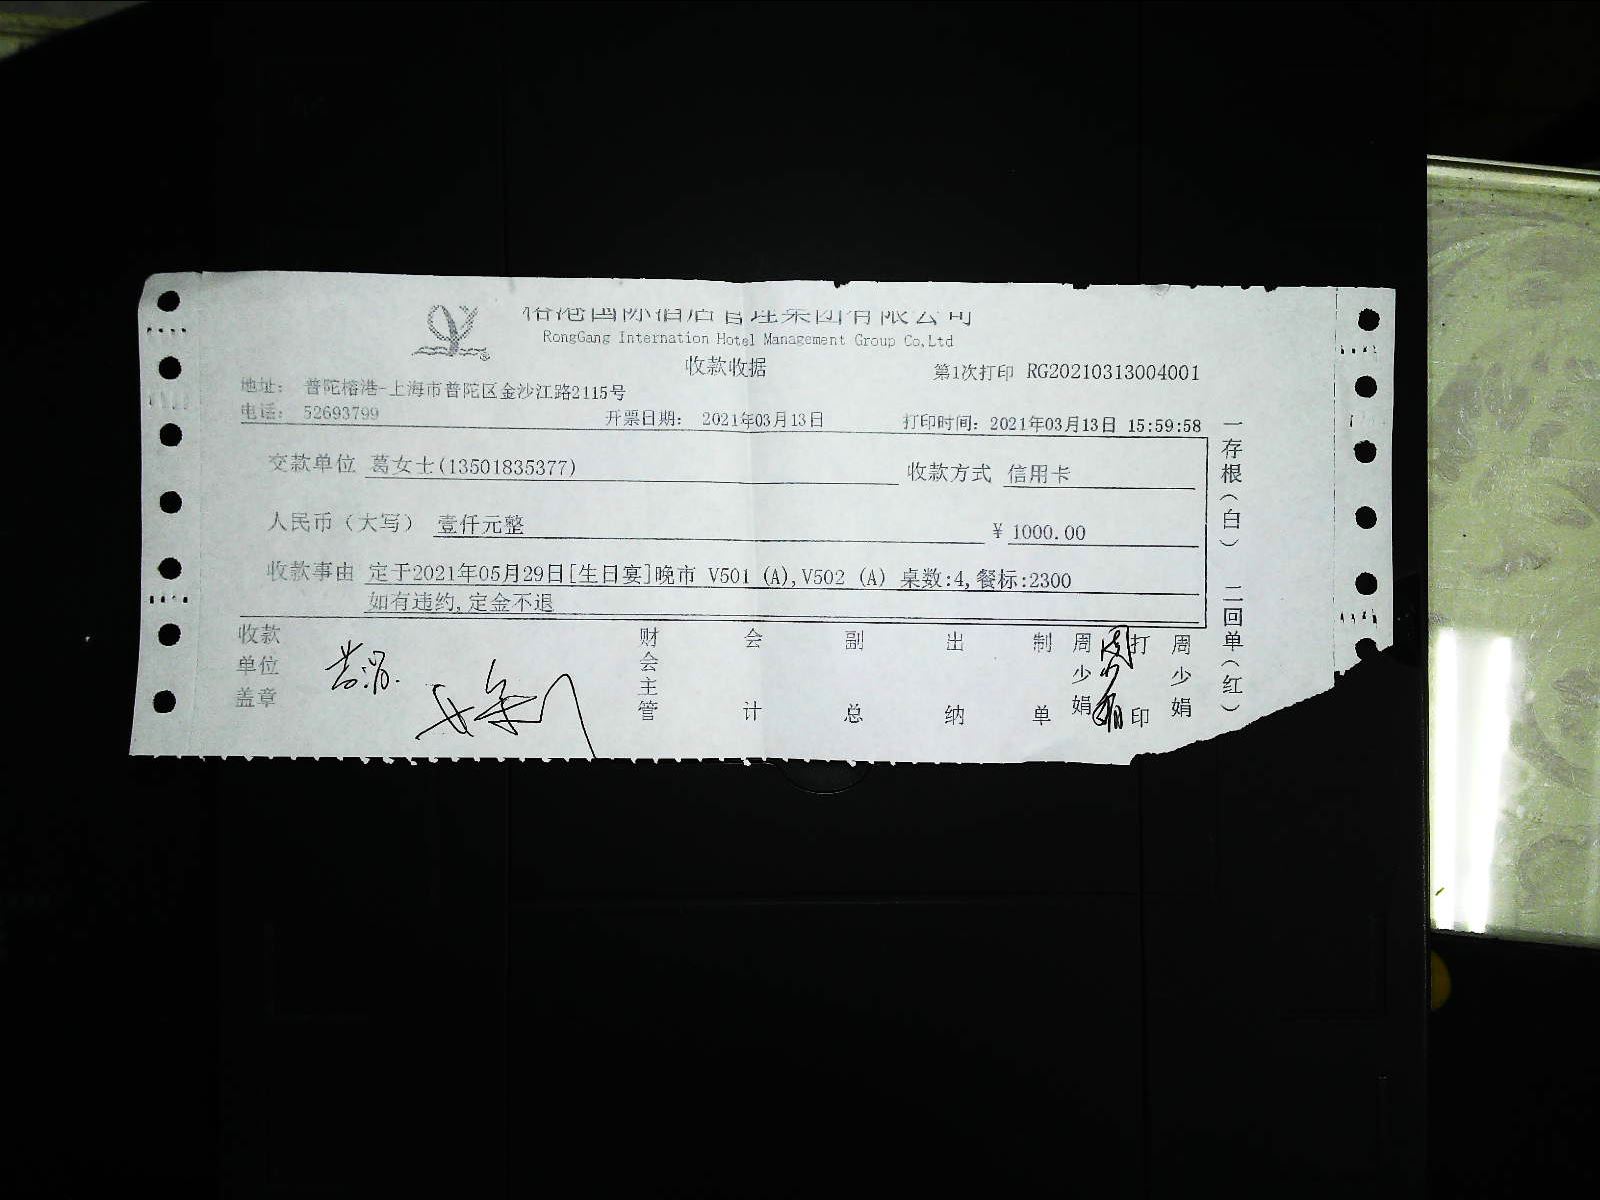 榕港国际酒店管理集团有限公司
RongGang Internation Hotel Management Group Co,Ltd
收款收据
第1次打印 RG20210313004001
地址： 普陀榕港-上海市普陀区金沙江路2115号
电话： 52693799
开票日期： 2021年03月13日
打印时间：2021年03月13日 15:59:58
交款单位 葛女士(13501835377)
收款方式 信用卡
人民币（大写） 壹仟元整
¥ 1000.00
收款事由 定于2021年05月29日[生日宴]晚市 V501 (A),V502 (A) 桌数:4,餐标:2300
如有违约,定金不退
收款单位盖章
财会主管
会计
副总
出纳
制单
周少娟
打印
周少娟
一存根(白) 二回单(红)